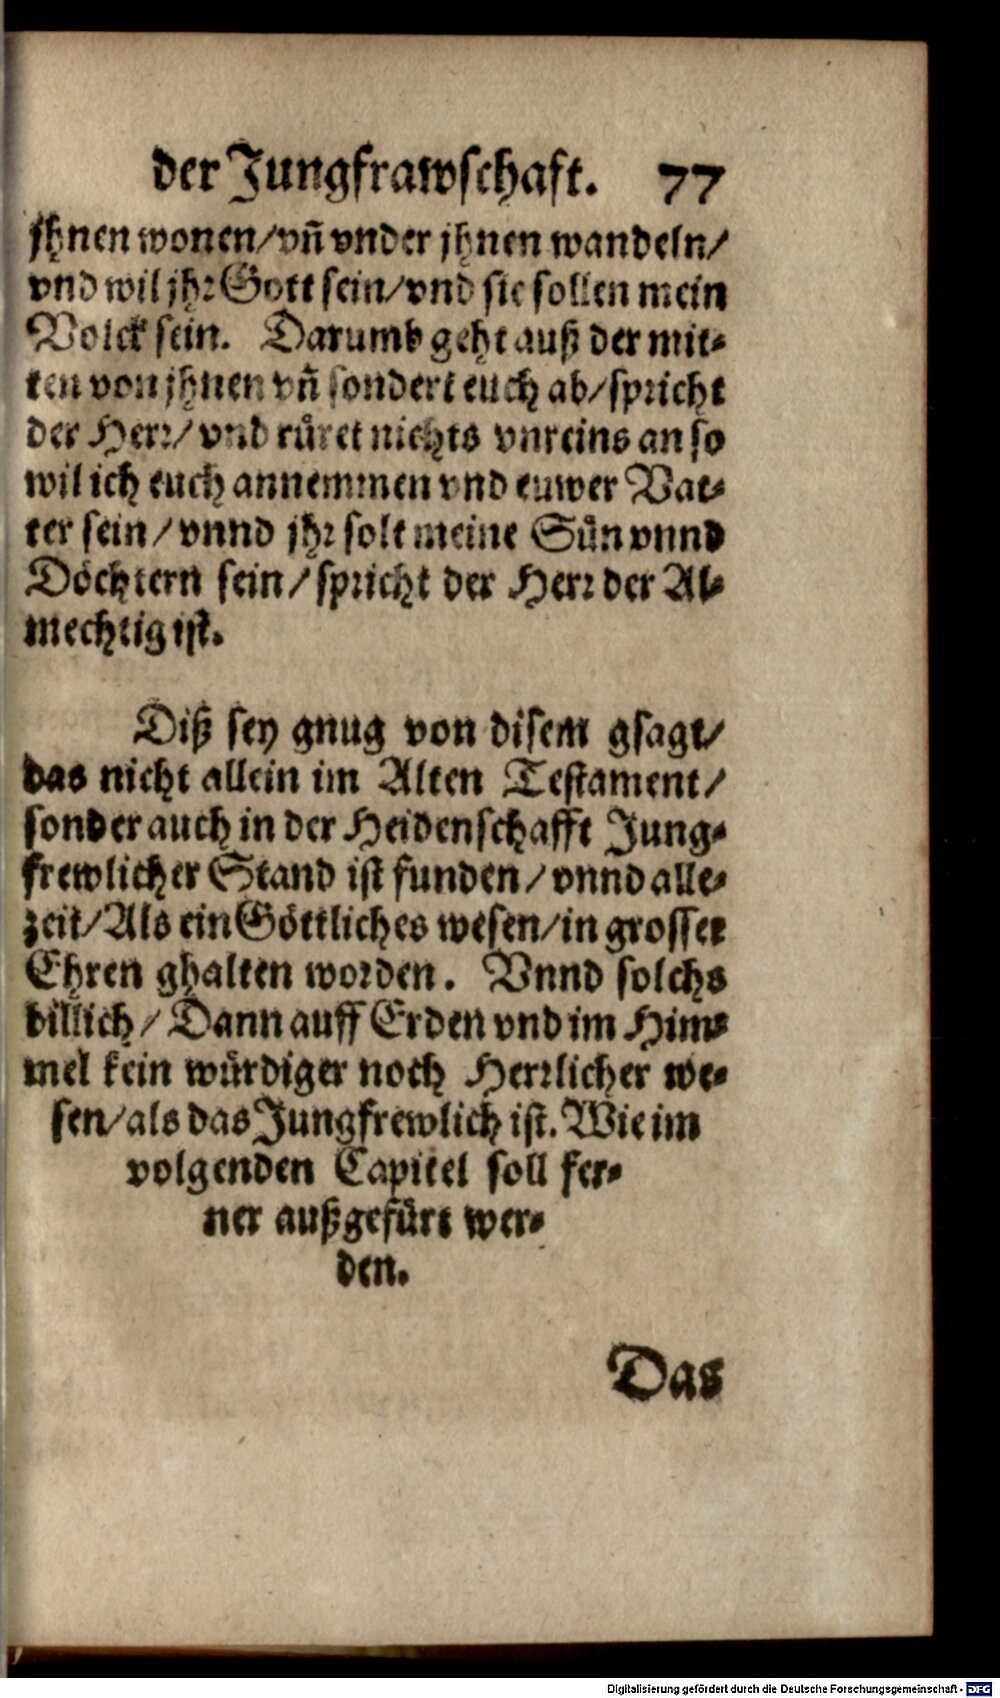 der Jungfrawschaft. 77
jhnen wonen/vñ vnder jhnen wandeln/
vnd wil jhr Gott sein/vnd sie sollen mein
Volck sein. Darumb geht auß der mit-
ten von jhnen vñ sondert euch ab/spricht
der Herr/vnd rüret nichts vnreins an so
wil ich euch annemmen vnd euwer Vat-
ter sein/vnnd jhr solt meine Sün vnnd
Döchtern sein/spricht der Herr der Al-
mechtig ist.
Diß sey gnug von disem gsagt/
das nicht allein im Alten Testament/
sonder auch in der Heidenschafft Jung-
frewlicher Stand ist funden/vnnd alle-
zeit/Als ein Göttliches wesen/in grosser
Ehren ghalten worden. Vnnd solchs
billich/Dann auff Erden vnd im Him-
mel kein würdiger noch Herrlicher we-
sen/als das Jungfrewlich ist. Wie im
volgenden Capitel soll fer-
ner außgefürt wer-
den.
Das
Digitalisierung gefördert durch die Deutsche Forschungsgemeinschaft - DFG